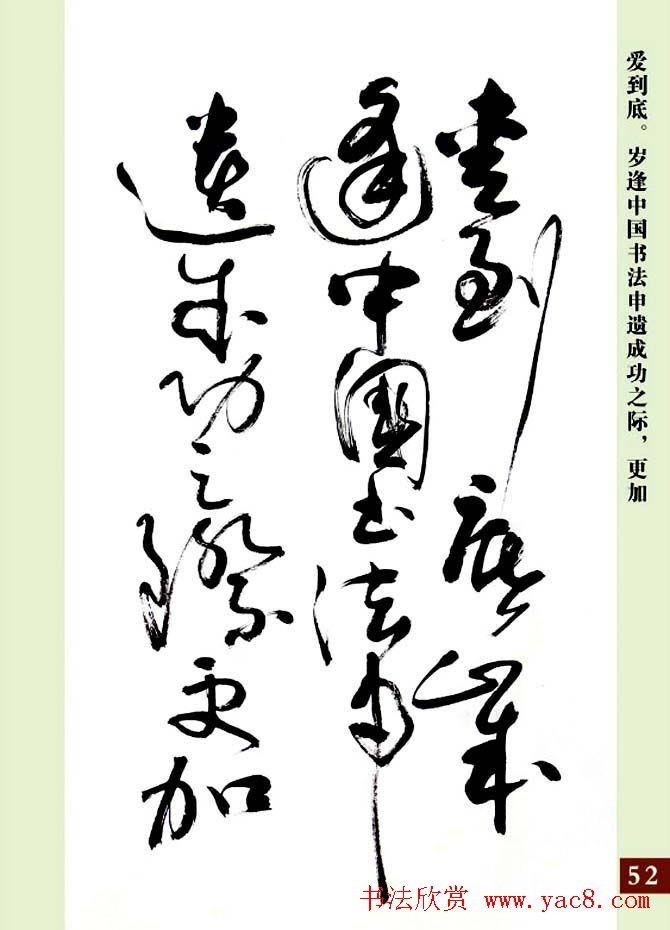 爱到底岁
逢中国书法申
遗成功之际更加
爱到底。岁逢中国书法申遗成功之际，更加
52
书法欣赏 www.yac8.com